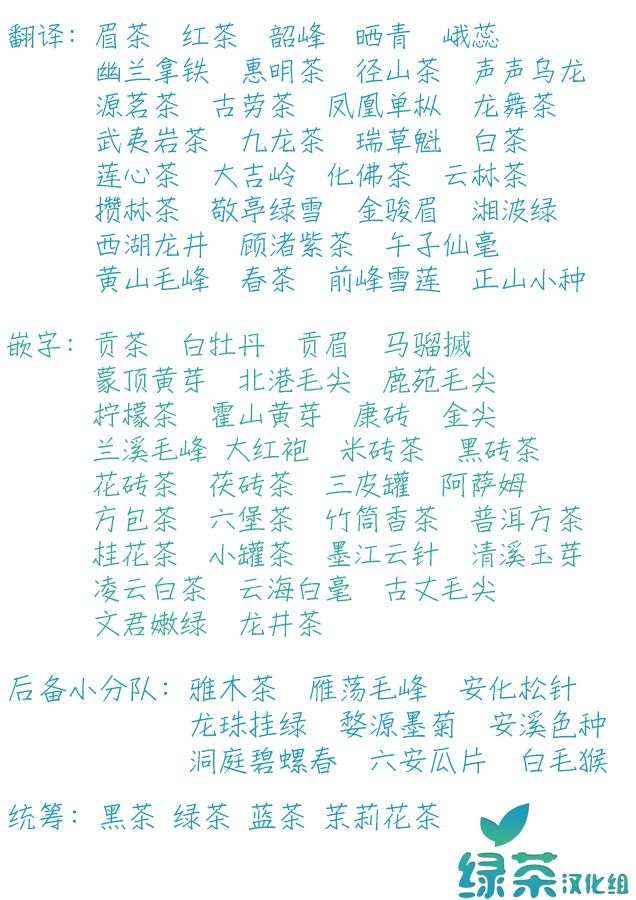 翻译：眉茶 红茶 韶峰 晒青 峨蕊
幽兰拿铁 惠明茶 径山茶 声声乌龙
源茗茶 古劳茶 凤凰单枞 龙舞茶
武夷岩茶 九龙茶 瑞草魁 白茶
莲心茶 大吉岭 化佛茶 云林茶
攒林茶 敬亭绿雪 金骏眉 湘波绿
西湖龙井 顾渚紫茶 午子仙毫
黄山毛峰 春茶 前峰雪莲 正山小种
嵌字：贡茶 白牡丹 贡眉 马骝搣
蒙顶黄芽 北港毛尖 鹿苑毛尖
柠檬茶 霍山黄芽 康砖 金尖
兰溪毛峰 大红袍 米砖茶 黑砖茶
花砖茶 茯砖茶 三皮罐 阿萨姆
方包茶 六堡茶 竹筒香茶 普洱方茶
桂花茶 小罐茶 墨江云针 清溪玉芽
凌云白茶 云海白毫 古丈毛尖
文君嫩绿 龙井茶
后备小分队：雅木茶 雁荡毛峰 安化松针
龙珠挂绿 婺源墨菊 安溪色种
洞庭碧螺春 六安瓜片 白毛猴
统筹：黑茶 绿茶 蓝茶 茉莉花茶
绿茶汉化组